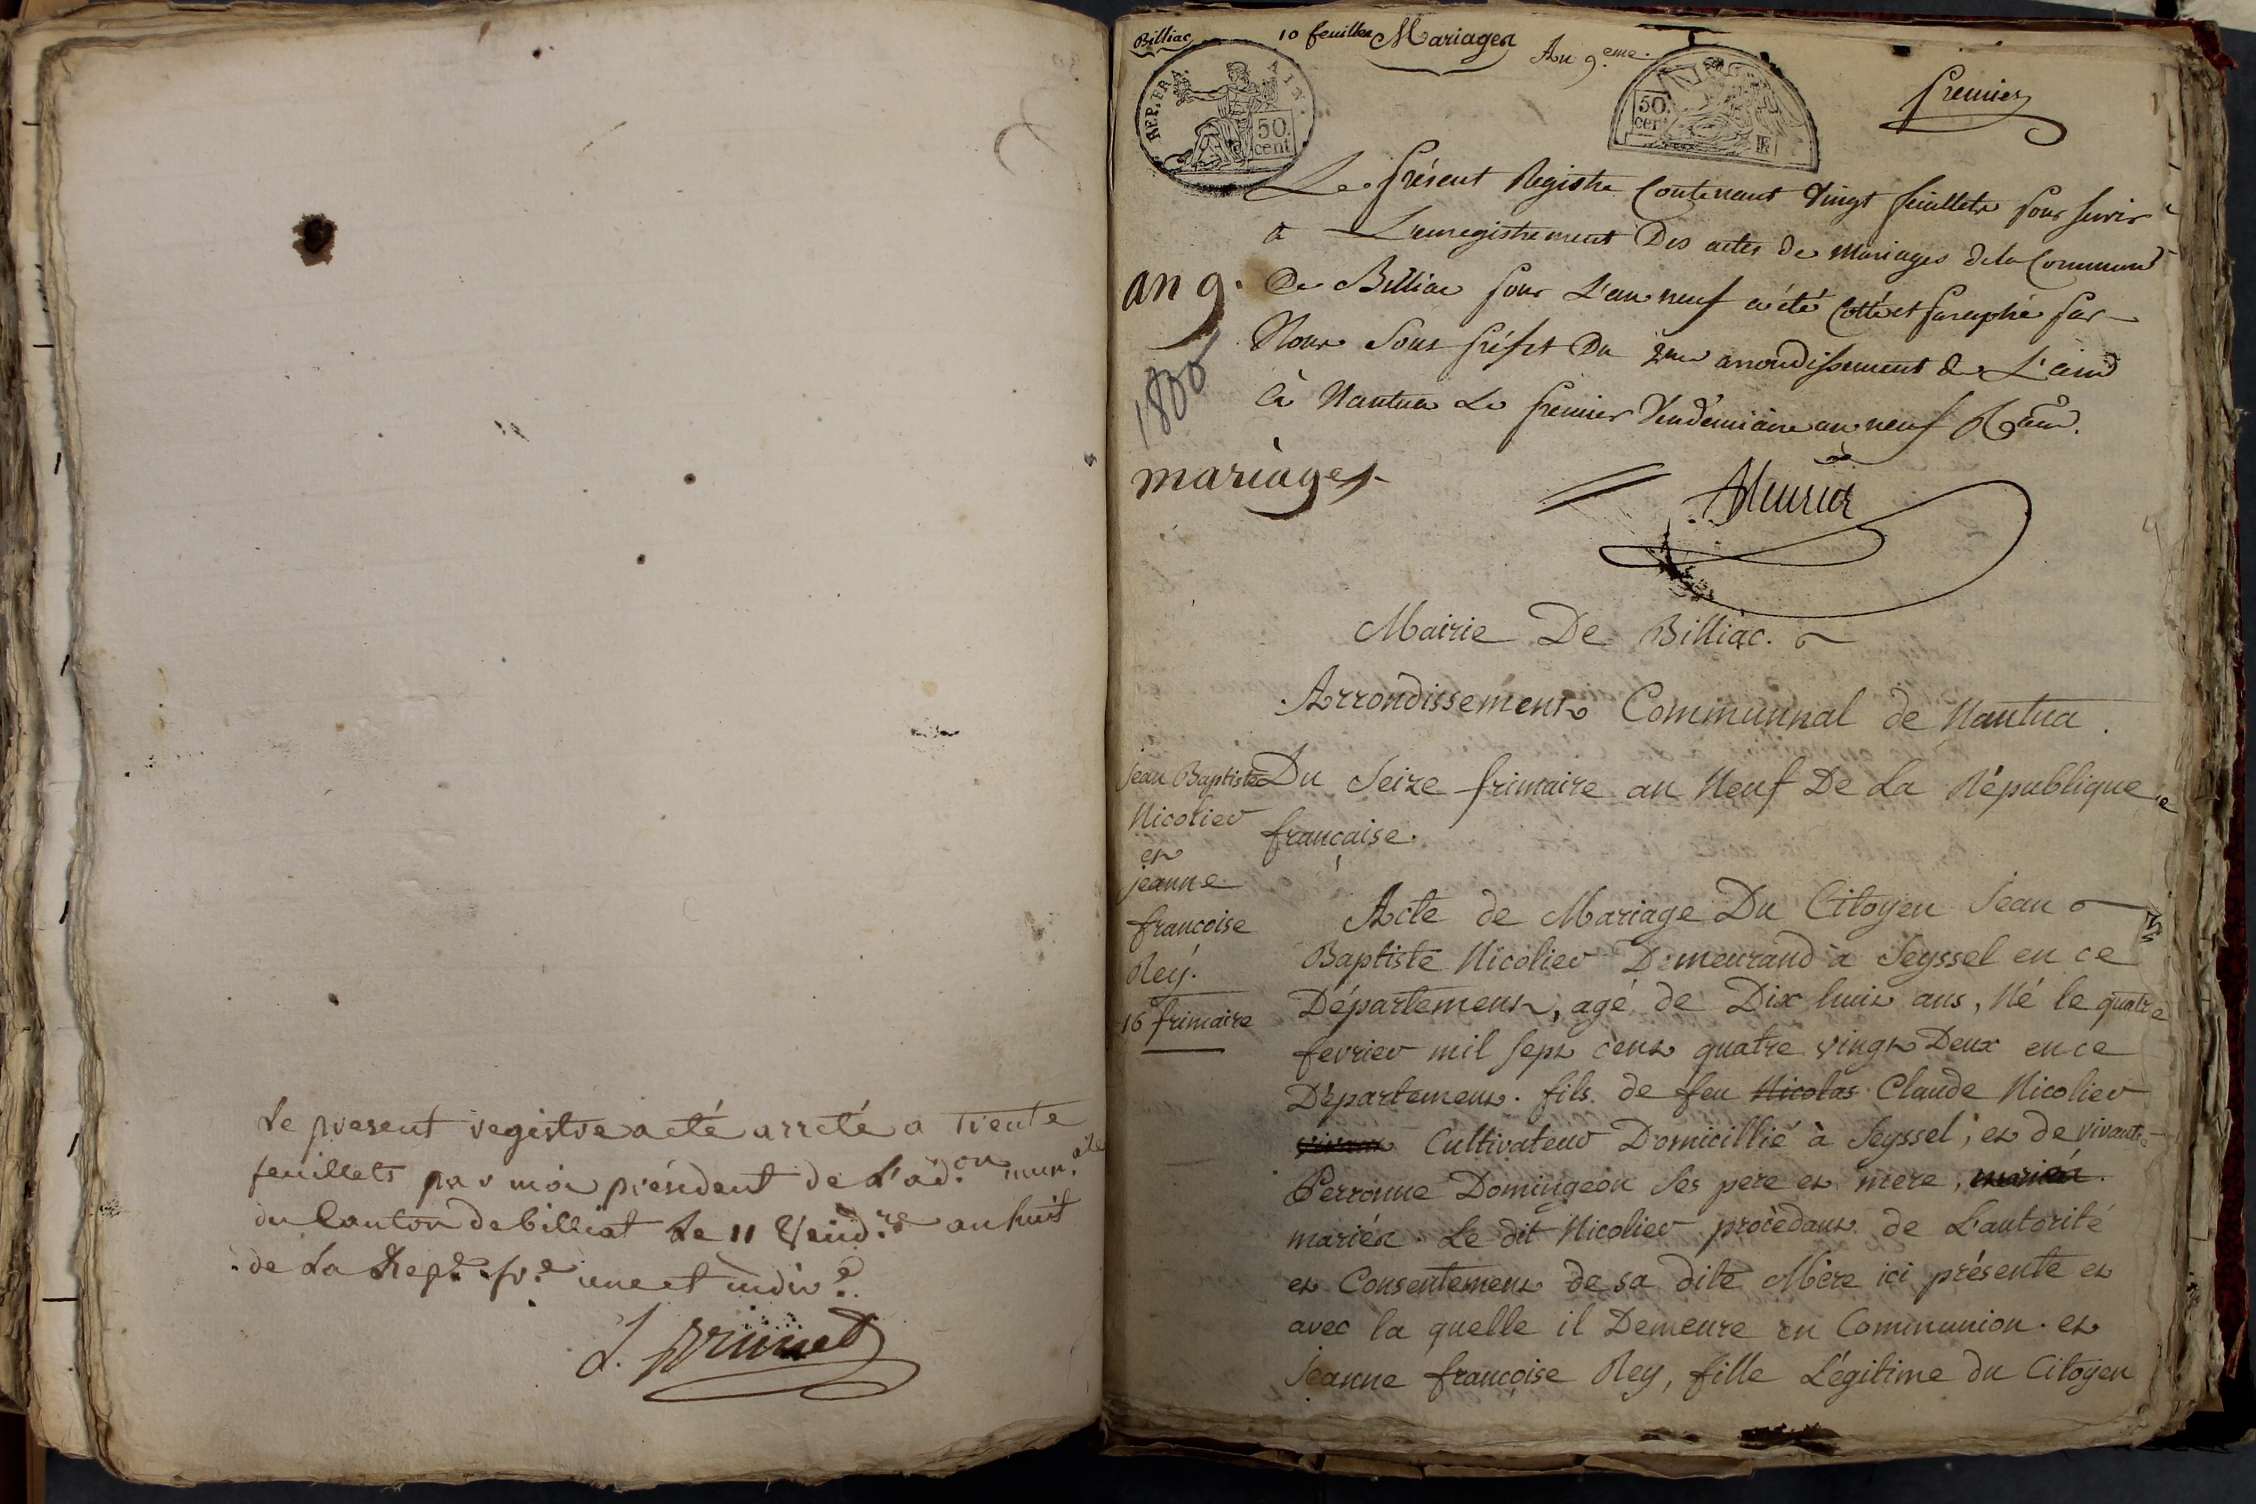 Le present registre acté arreté a Trente
feuillets par moi président de L'ad.on mun.ale
du Canton de billiat Le 11 Vend.re an huit
de La Rep.e fr.e une et indiv.e
J. Brunet
Billiac
10 feuilles
Mariages
An 9.eme
Premier
REP. FRA.
50 cent
50 cent
RF
Le présent Registre Contenant Vingt feuillets pour servir
a L'enregistrement Des actes de Mariages de la Commune
De Billiac pour L'an neuf a été Cotté et paraphé par
Nous Sous préfet Du 2me arrondissement de L'ain
à Nantua Le premier Vendémiaire an neuf
an 9.
1800
mariages
Mairie De Billiac.
Arrondissement Communnal de Nantua.
Jean Baptiste
Nicolier
et
jeanne
francoise
Rey.
16 frimaire
Du Seize frimaire an Neuf De La République
française.
Acte de Mariage Du Citoyen Jean
Baptiste Nicolier Demeurand à Seyssel en ce
Département, agé de Dix huit ans, Né le quatre
fevrier mil sept cent quatre vingt Deux en ce
Département. fils de feu Nicolas Claude Nicolier
vivant Cultivateur Domicillié à Seyssel; et de vivante
Perronne Domingeon Ses pere et mere, mariés.
mariés. Le dit Nicolier procèdant de L'autorité
et Consentement de sa dite Mère ici présente et
avec la quelle il Demeure en Communion. et
Jeanne françoise Rey, fille Légitime du Citoyen